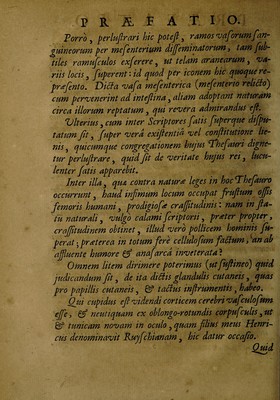 PRÆFATIO.
Porrò, perlustrari hic potest, ramos vasorum san-
guineorum per mesenterium disseminatorum, tam sub-
tiles ramusculos exserere, ut telam aranearum, va-
riis locis, superent: id quod per iconem hic quoque re-
præsento. Dicta vasa mesenterica (mesenterio relicto)
cum pervenerint ad intestina, aliam adoptant naturam
circa illorum reptatum, qui revera admirandus est.
Ulterius, cum inter Scriptores satis superque dispu-
tatum sit, super verâ existentiâ vel constitutione lie-
nis, quicumque congregationem hujus Thesauri digne-
tur perlustrare, quid sit de veritate hujus rei, lucu-
lenter satis apparebit.
Inter illa, quæ contra naturæ leges in hoc Thesauro
occurrunt, haud infimum locum occupat frustum ossis
femoris humani, prodigiosæ crassitudinis: nam in sta-
tu naturali, vulgo calami scriptorii, præter propter,
crassitudinem obtinet, illud verò pollicem hominis su-
perat; præterea in totum ferè cellulosum factum, an ab
affluente humore & anasarcâ inveteratâ?
Omnem litem dirimere poterimus (ut sustineo) quid
judicandum sit, de ita dictis glandulis cutaneis, quas
pro papillis cutaneis, & tactus instrumentis, habeo.
Qui cupidus est videndi corticem cerebri vasculosum
esse, & neutiquam ex oblongo-rotundis corpusculis, ut
& tunicam novam in oculo, quam filius meus Henri-
cus denominavit Ruyschianam, hic datur occasio.
Quid